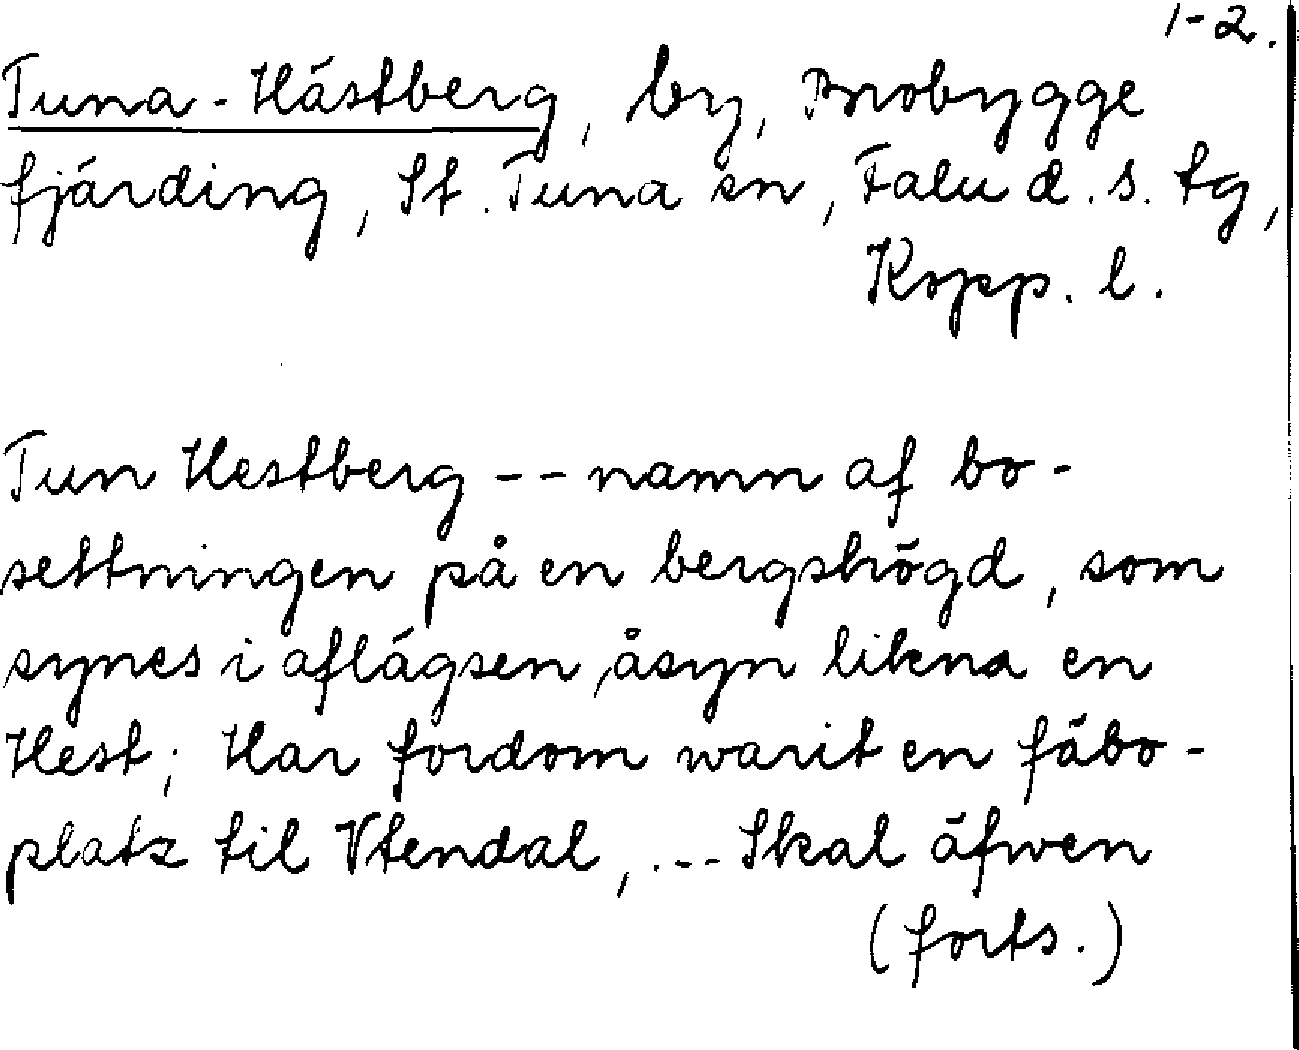 1-2.
Tuna-Hästberg, by, Brobygge
fjärding, St. Tuna sn, Falu d. s. tg,
Kopp. l.
Tun Hestberg -- namn af bo-
settningen på en bergshögd, som
synes i aflägsen åsyn likna en
Hest; Har fordom warit en fäbo-
platz til Vtendal, ... Skal äfwen
(forts.)